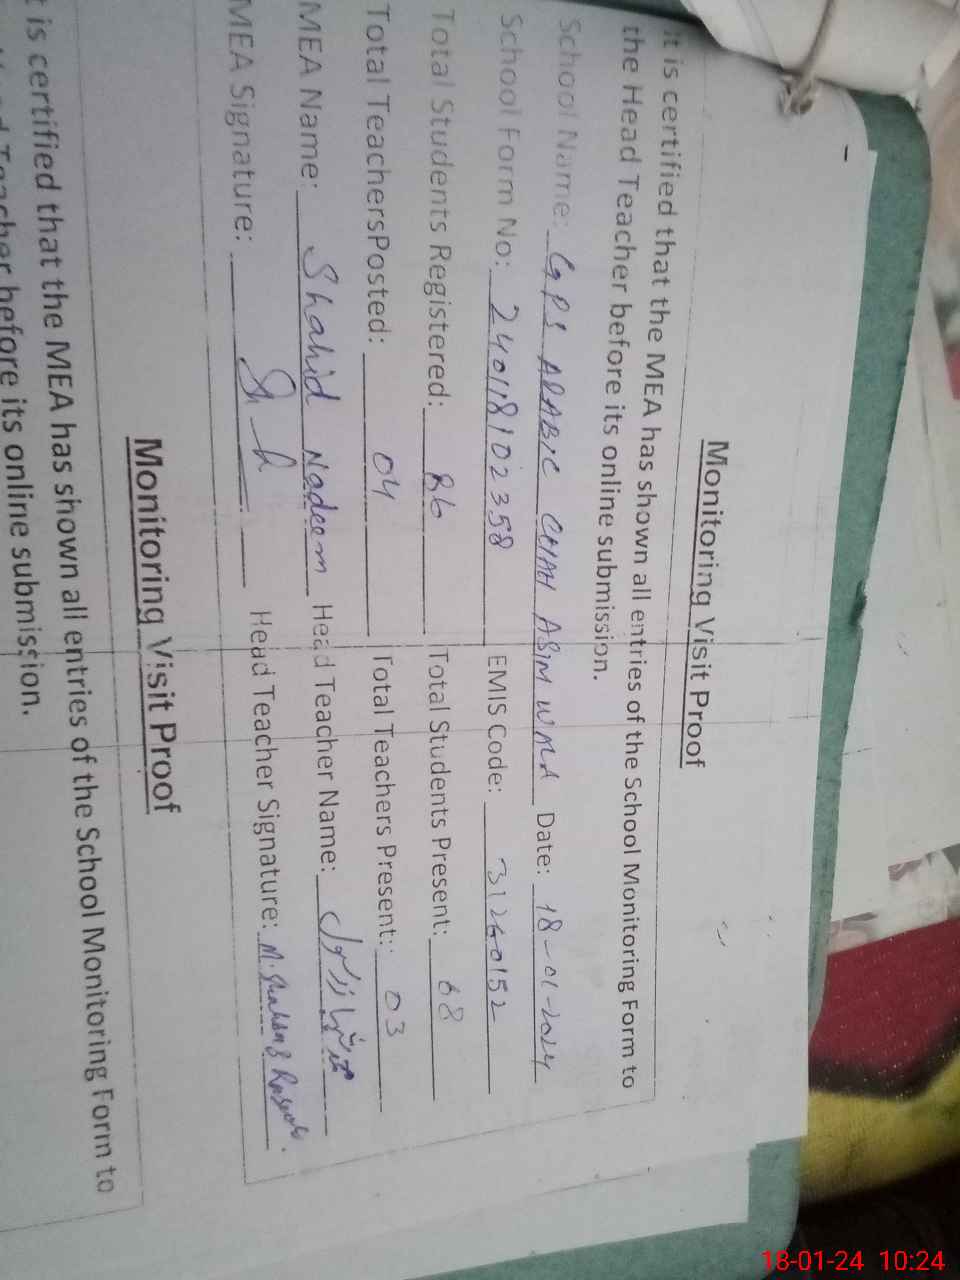 Monitoring Visit Proof
It is certified that the MEA has shown all entries of the School Monitoring Form to
the Head Teacher before its online submission.
School Name: GPS ARABIC CHAH ASIM WALA Date: 18-01-2024
School Form No: 240118102358 EMIS Code: 31260152
Total Students Registered: 86 Total Students Present: 68
Total TeachersPosted: 04 Total Teachers Present: 03
MEA Name: Shahid Nadeem Head Teacher Name:
MEA Signature: Head Teacher Signature: M.
Monitoring Visit Proof
t is certified that the MEA has shown all entries of the School Monitoring Form to
Head Teacher before its online submission.
18-01-24 10:24